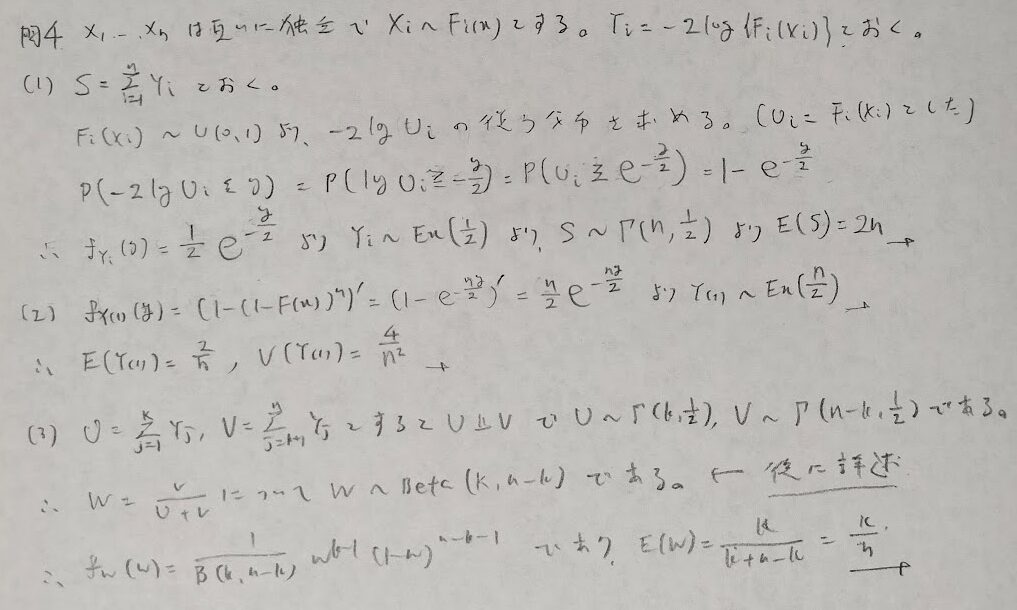 問4 X₁ … Xₙ は互いに独立で Xᵢ ~ Fᵢ(x) とする。 Yᵢ = -2log{Fᵢ(Xᵢ)} とおく。
(1) S = Σ_{i=1}^{n} Yᵢ とおく。
Fᵢ(Xᵢ) ~ U(0,1) より、 -2log Uᵢ の従う分布を求める。 (Uᵢ = Fᵢ(Xᵢ) とした)
P(-2log Uᵢ ≦ y) = P(log Uᵢ ≧ -y/2) = P(Uᵢ ≧ e^{-y/2}) = 1 - e^{-y/2}
∴ f_{Yᵢ}(y) = 1/2 e^{-y/2} より Yᵢ ~ Ex(1/2) より、 S ~ Γ(n, 1/2) より E(S) = 2n →
(2) f_{Y(1)}(y) = (1-(1-F(x))ⁿ)' = (1 - e^{-ny/2})' = n/2 e^{-ny/2} より Y(1) ~ Ex(n/2) →
∴ E(Y(1)) = 2/n , V(Y(1)) = 4/n² →
(3) U = Σ_{j=1}^{k} Yⱼ, V = Σ_{j=k+1}^{n} Yⱼ とすると U ⫫ V で U ~ Γ(k, 1/2), V ~ Γ(n-k, 1/2) である。
∴ W = U/(U+V) について W ~ Beta(k, n-k) である。 ← 後に詳述
∴ f_W(w) = 1/B(k, n-k) w^{k-1} (1-w)^{n-k-1} であり、 E(W) = k/(k+n-k) = k/n →